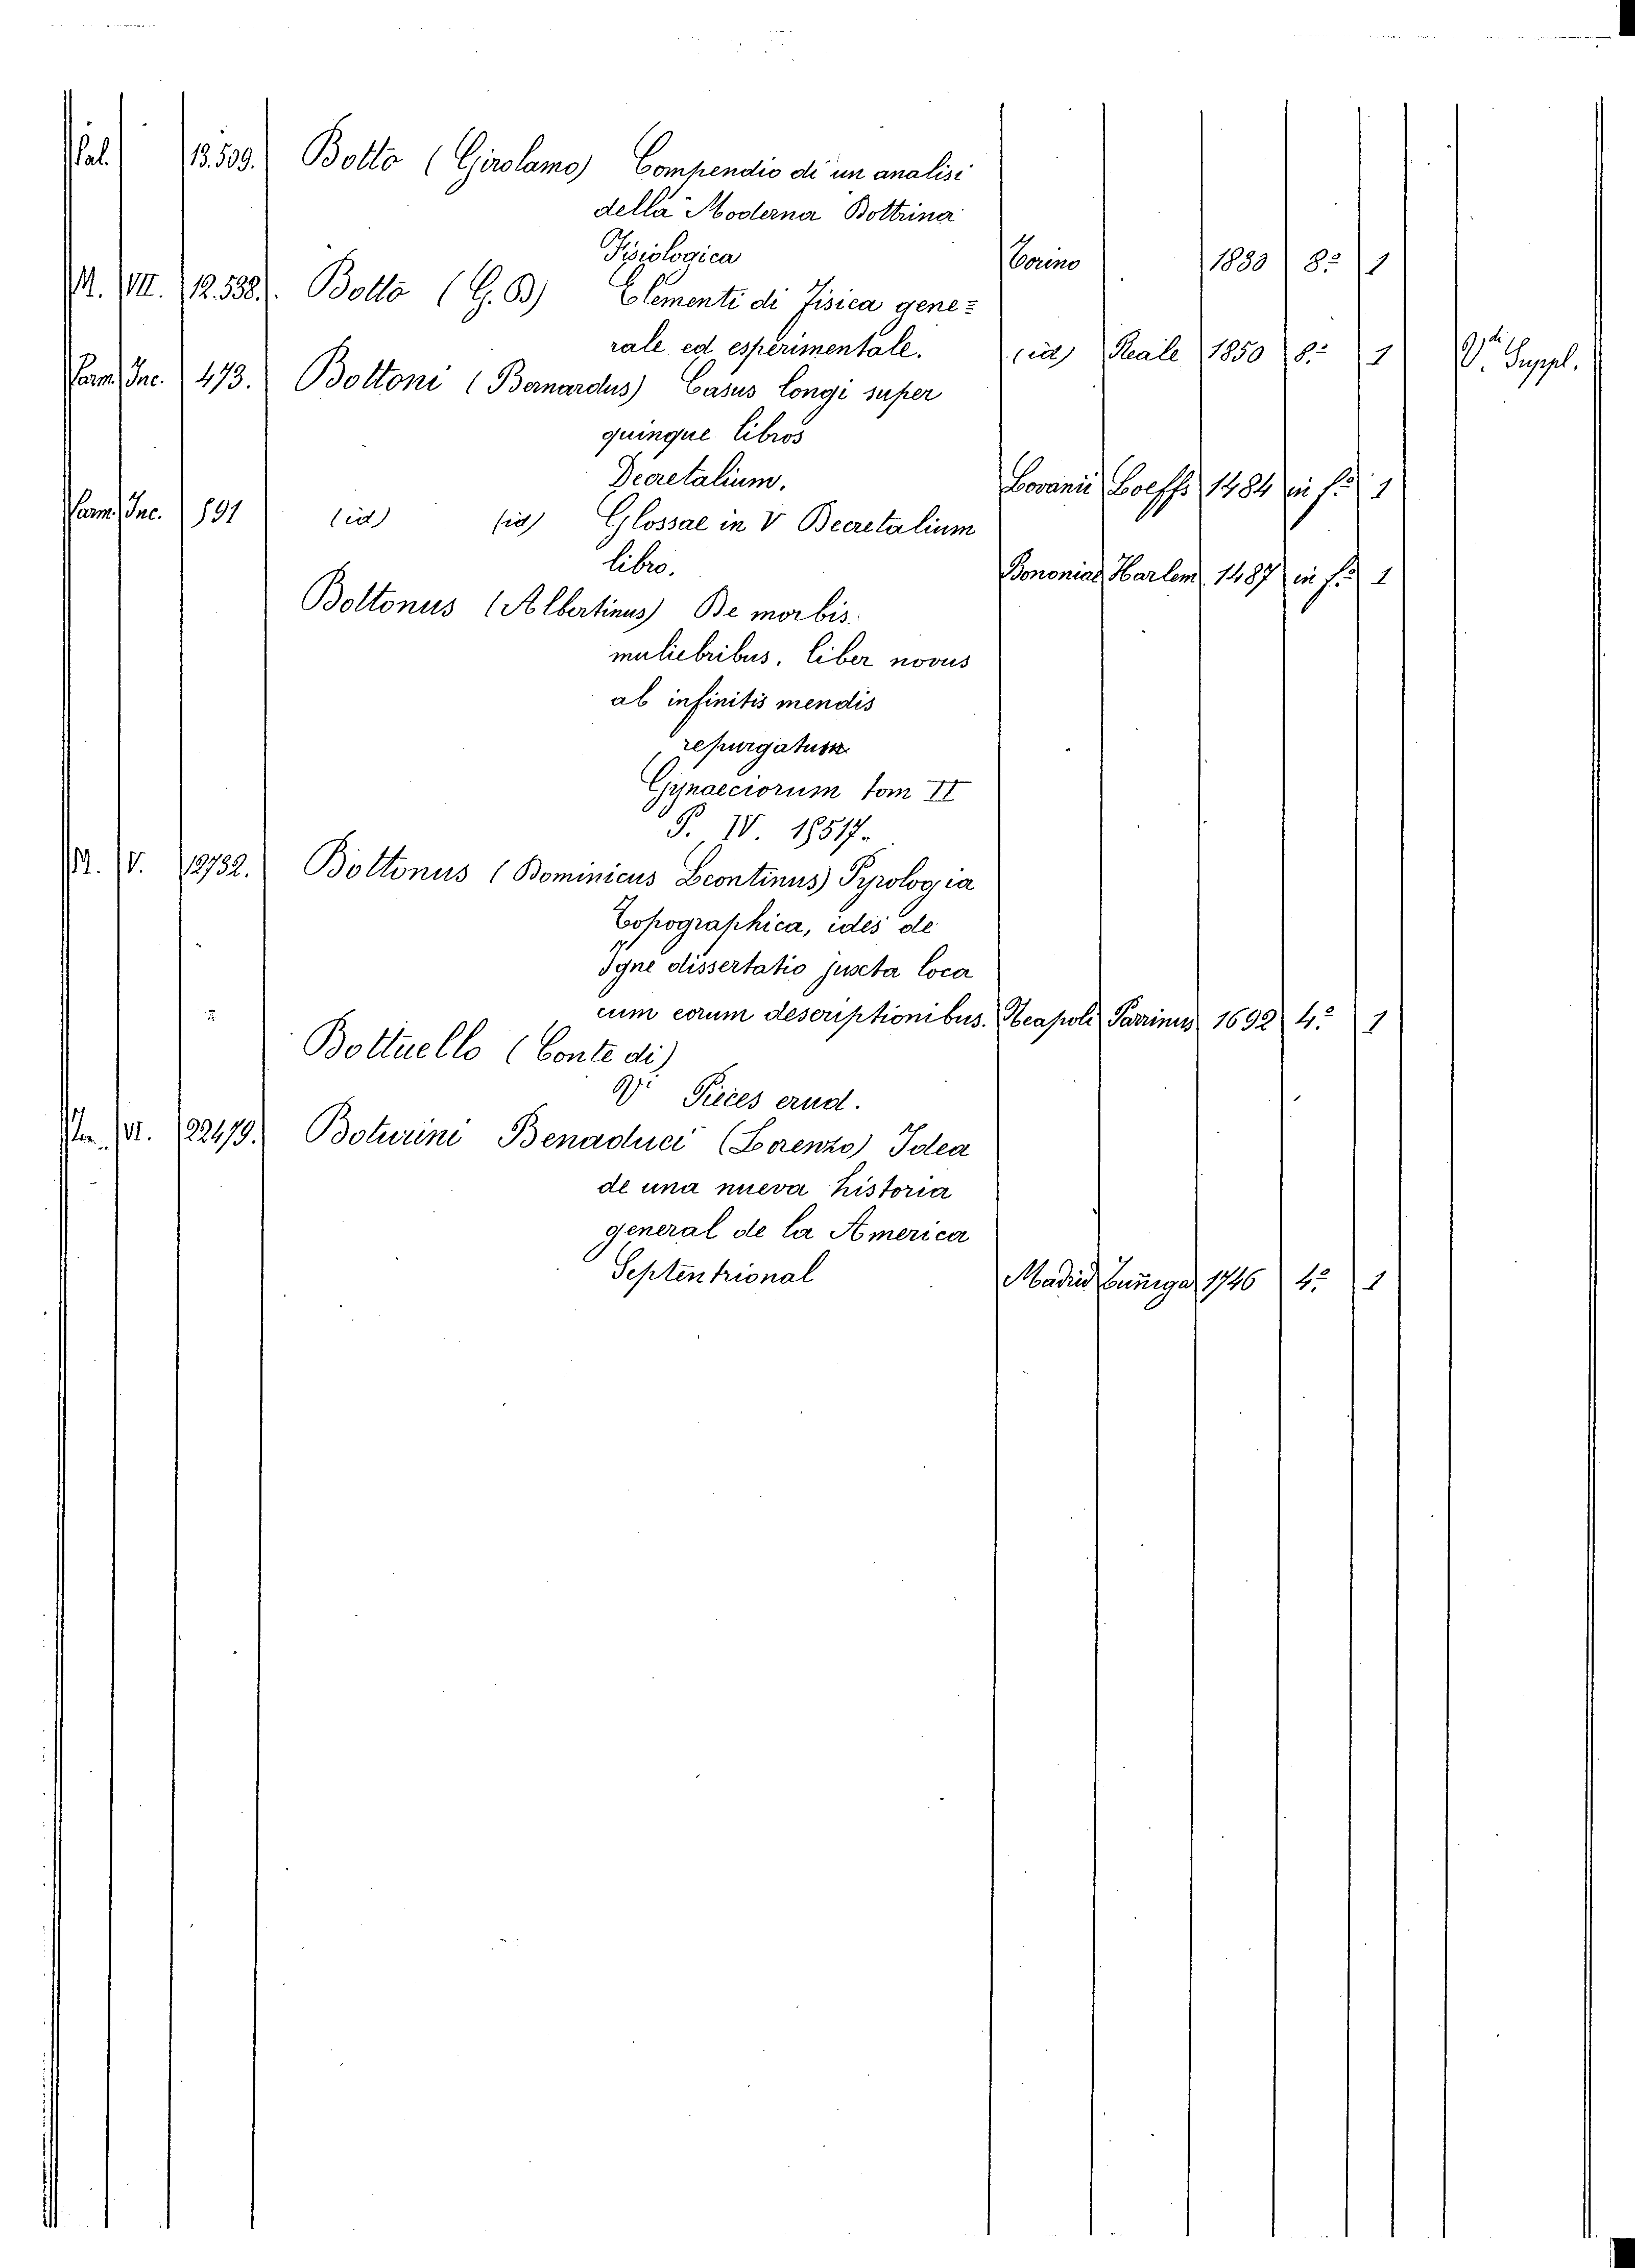 Pal. 13.509. Botto (Girolamo) Compendio di un analisi
della Moderna Dottrina
Fisiologica Torino 1833 8.° 1
M. VII. 12.538. Botto (G. B) Elementi di Fisica gene=
rale ed esperimentale. (id) Reale 1850 8.° 1 Vdi Suppl.
Parm. Inc. 473. Bottoni (Bernardus) Casus longi super
quinque libros
Decretalium. Lovanii Loeffs 1484 in f.° 1
Parm. Inc. 891 (id) (id) Glossae in V Decretalium
libro. Bononiae Harlem 1487 in f.° 1
Bottonus (Albertinus) De morbis
muliebribus. liber novus
ab infinitis mendis
repurgatum
Gynaeciorum tom II
P. IV. 18517.
M. V. 12732. Bottonus (Dominicus Leontinus) Pyrologia
Topographica, idés de
Igne dissertatio juxta loca
cum eorum descriptionibus. Neapoli Parrinus 1692 4.° 1
Bottuello (Conte di)
Vi Pieces erud.
VI. 22479. Boturini Benaduci (Lorenzo) Idea
de una nueva historia
general de la America
Septentrional Madrid Zuniga 1746 4.° 1